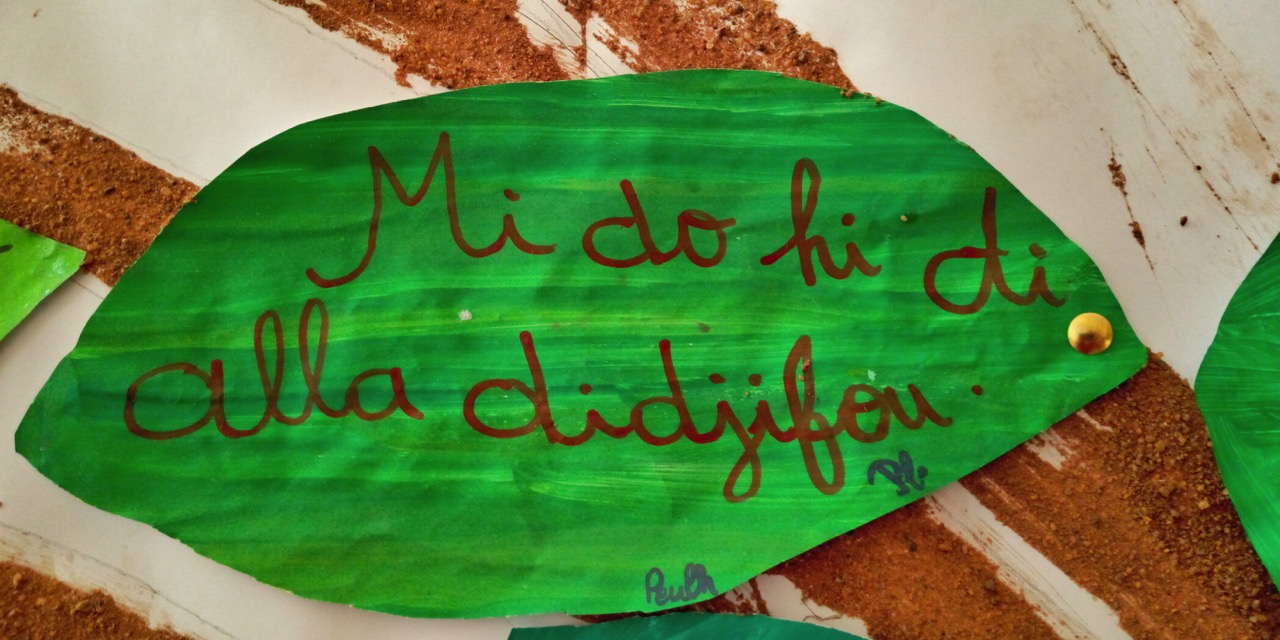 Mi do hi di
alla didjifou.
Peulh